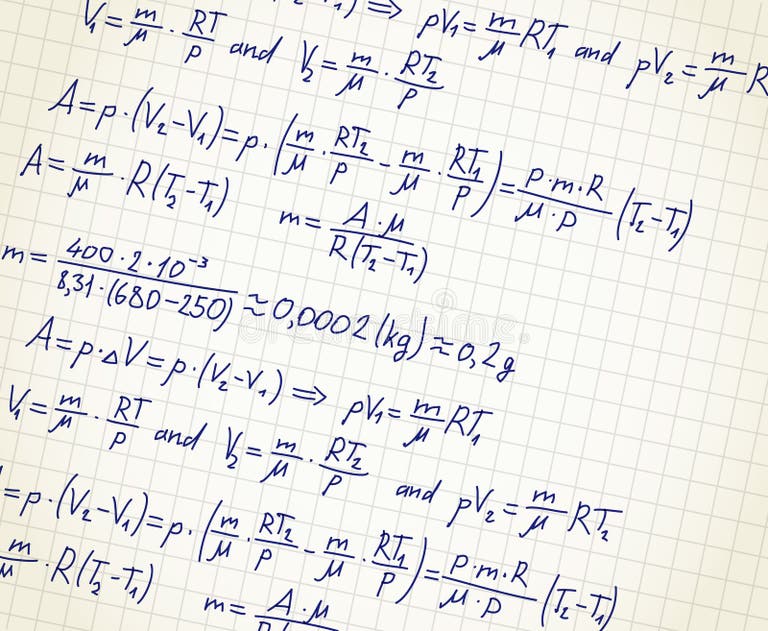 V₁ = m/μ · RT/p and V₂ = m/μ · RT₂/p
⇒ pV₁ = m/μ RT₁ and pV₂ = m/μ R
A = p · (V₂ − V₁) = p · (m/μ · RT₂/p − m/μ · RT₁/p) = p·m·R/μ·p (T₂ − T₁)
A = m/μ · R(T₂ − T₁)
m = A·μ/R(T₂ − T₁)
m = 400·2·10⁻³/8,31·(680−250) ≈ 0,0002 (kg) ≈ 0,2 g
A = p·ΔV = p·(V₂ − V₁) ⇒ pV₁ = m/μ RT₁
V₁ = m/μ · RT/p and V₂ = m/μ · RT₂/p and pV₂ = m/μ RT₂
= p · (V₂ − V₁) = p · (m/μ · RT₂/p − m/μ · RT₁/p) = p·m·R/μ·p (T₂ − T₁)
m/μ · R(T₂ − T₁)
m = A·μ